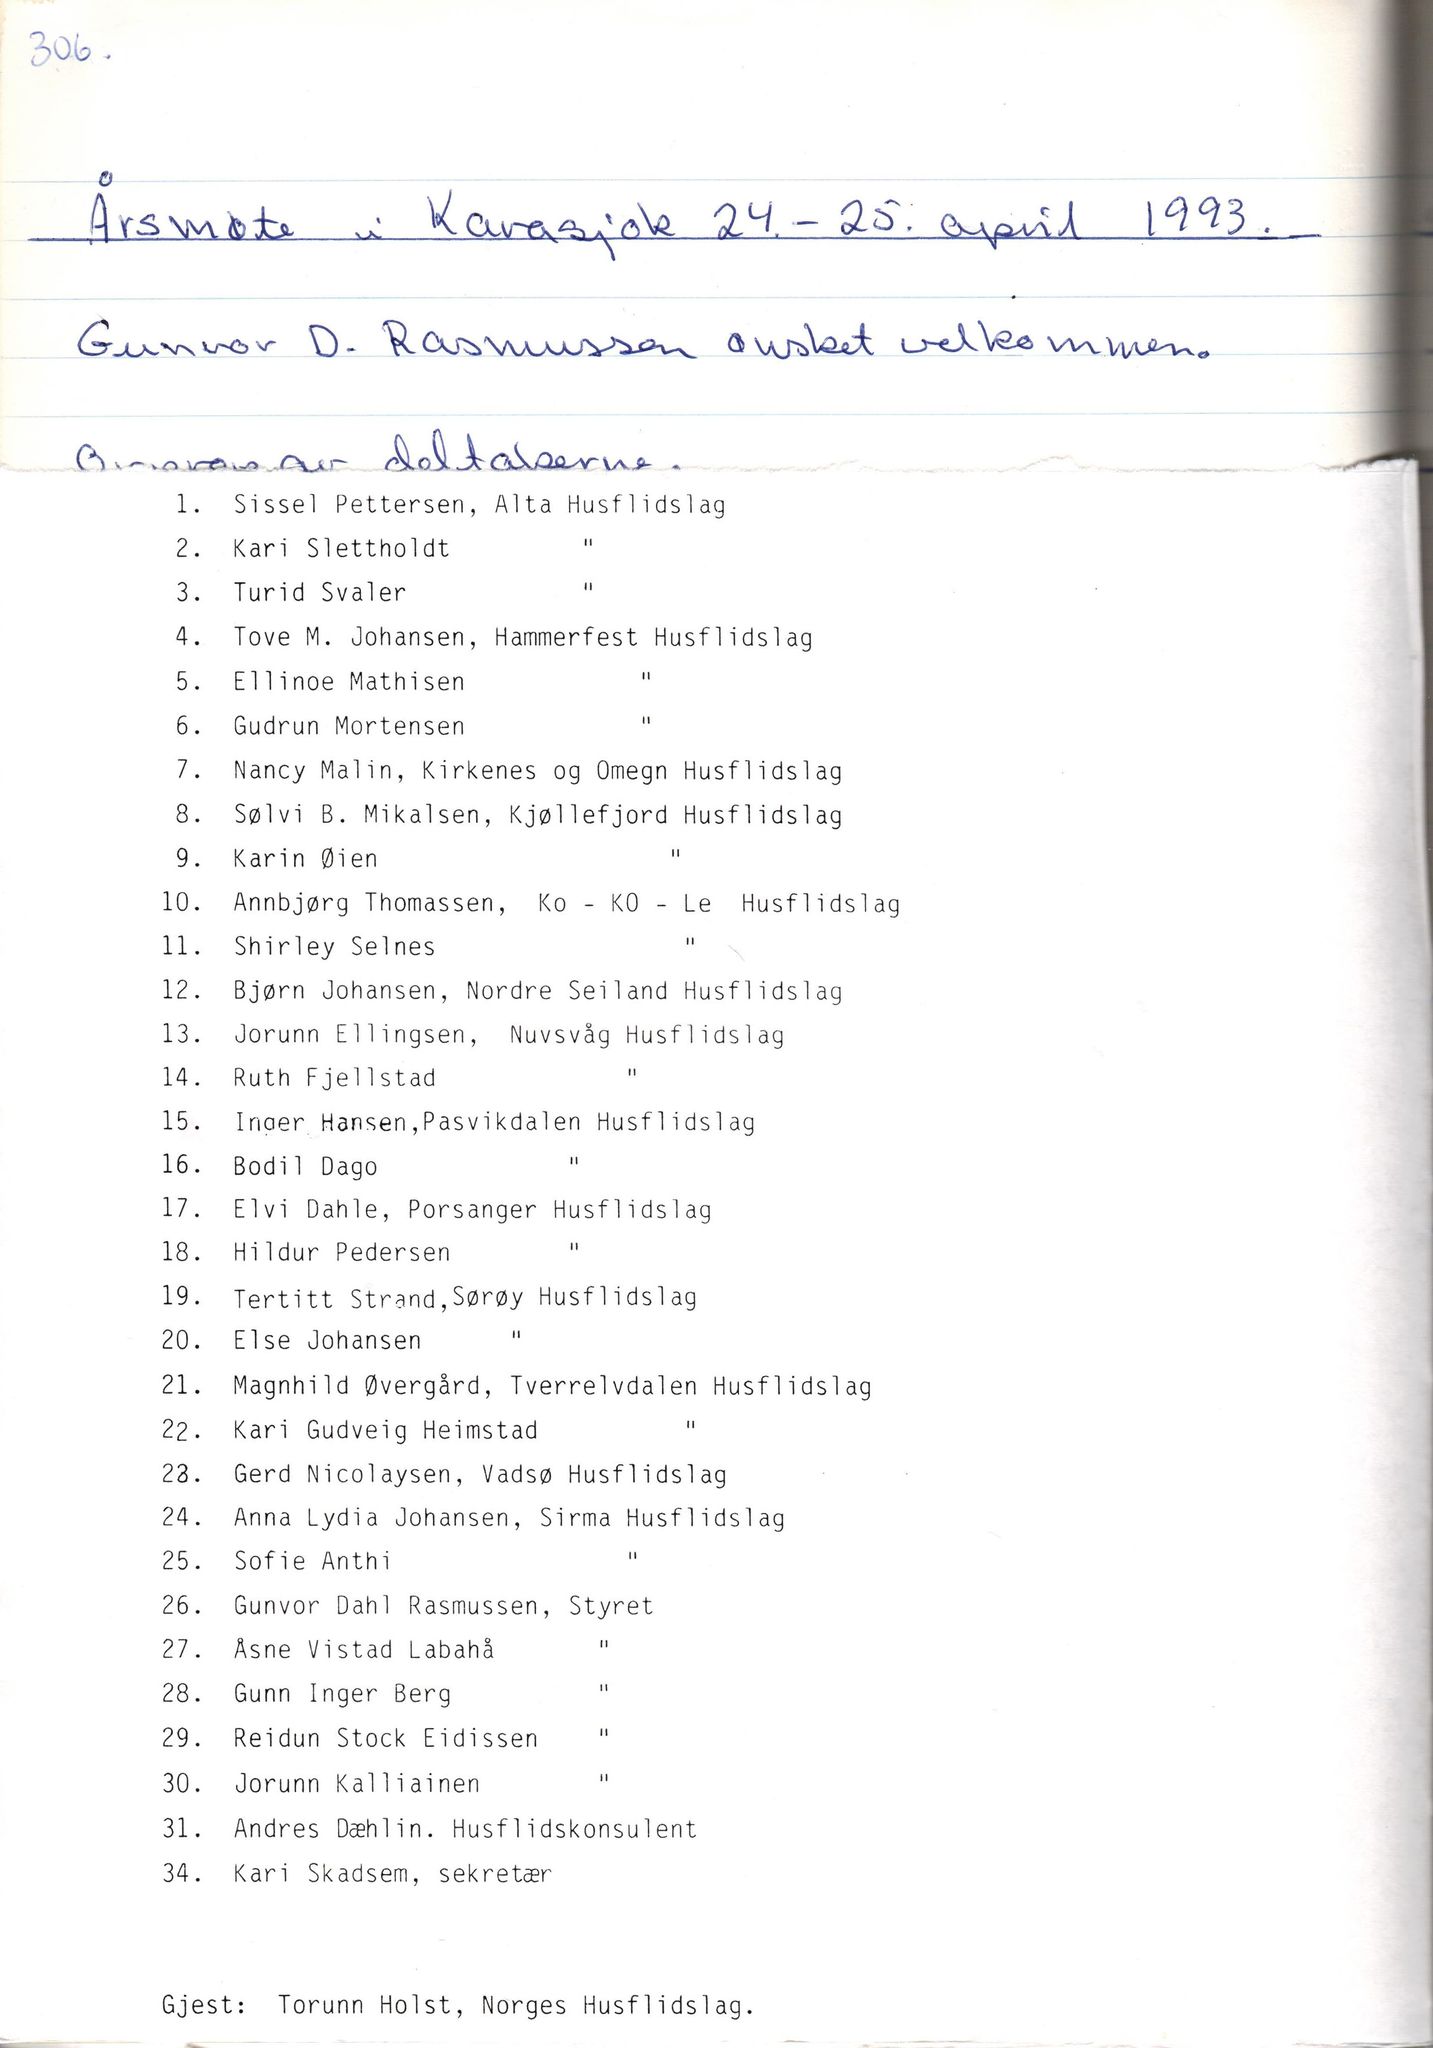 306.
Årsmøte i Karasjok 24.-25. april 1993.
Gunvor D. Rasmussen ønsket velkommen.
deltakerne.
1. Sissel Pettersen, Alta Husflidslag
2. Kari Slettholdt "
3. Turid Svaler "
4. Tove M. Johansen, Hammerfest Husflidslag
5. Ellinoe Mathisen "
6. Gudrun Mortensen "
7. Nancy Malin, Kirkenes og Omegn Husflidslag
8. Sølvi B. Mikalsen, Kjøllefjord Husflidslag
9. Karin Øien "
10. Annbjørg Thomassen, Ko - KO - Le Husflidslag
11. Shirley Selnes "
12. Bjørn Johansen, Nordre Seiland Husflidslag
13. Jorunn Ellingsen, Nuvsvåg Husflidslag
14. Ruth Fjellstad "
15. Inger Hansen,Pasvikdalen Husflidslag
16. Bodil Dago "
17. Elvi Dahle, Porsanger Husflidslag
18. Hildur Pedersen "
19. Tertitt Strand,Sørøy Husflidslag
20. Else Johansen "
21. Magnhild Øvergård, Tverrelvdalen Husflidslag
22. Kari Gudveig Heimstad "
23. Gerd Nicolaysen, Vadsø Husflidslag
24. Anna Lydia Johansen, Sirma Husflidslag
25. Sofie Anthi "
26. Gunvor Dahl Rasmussen, Styret
27. Åsne Vistad Labahå "
28. Gunn Inger Berg "
29. Reidun Stock Eidissen "
30. Jorunn Kalliainen "
31. Andres Dæhlin. Husflidskonsulent
34. Kari Skadsem, sekretær
Gjest: Torunn Holst, Norges Husflidslag.